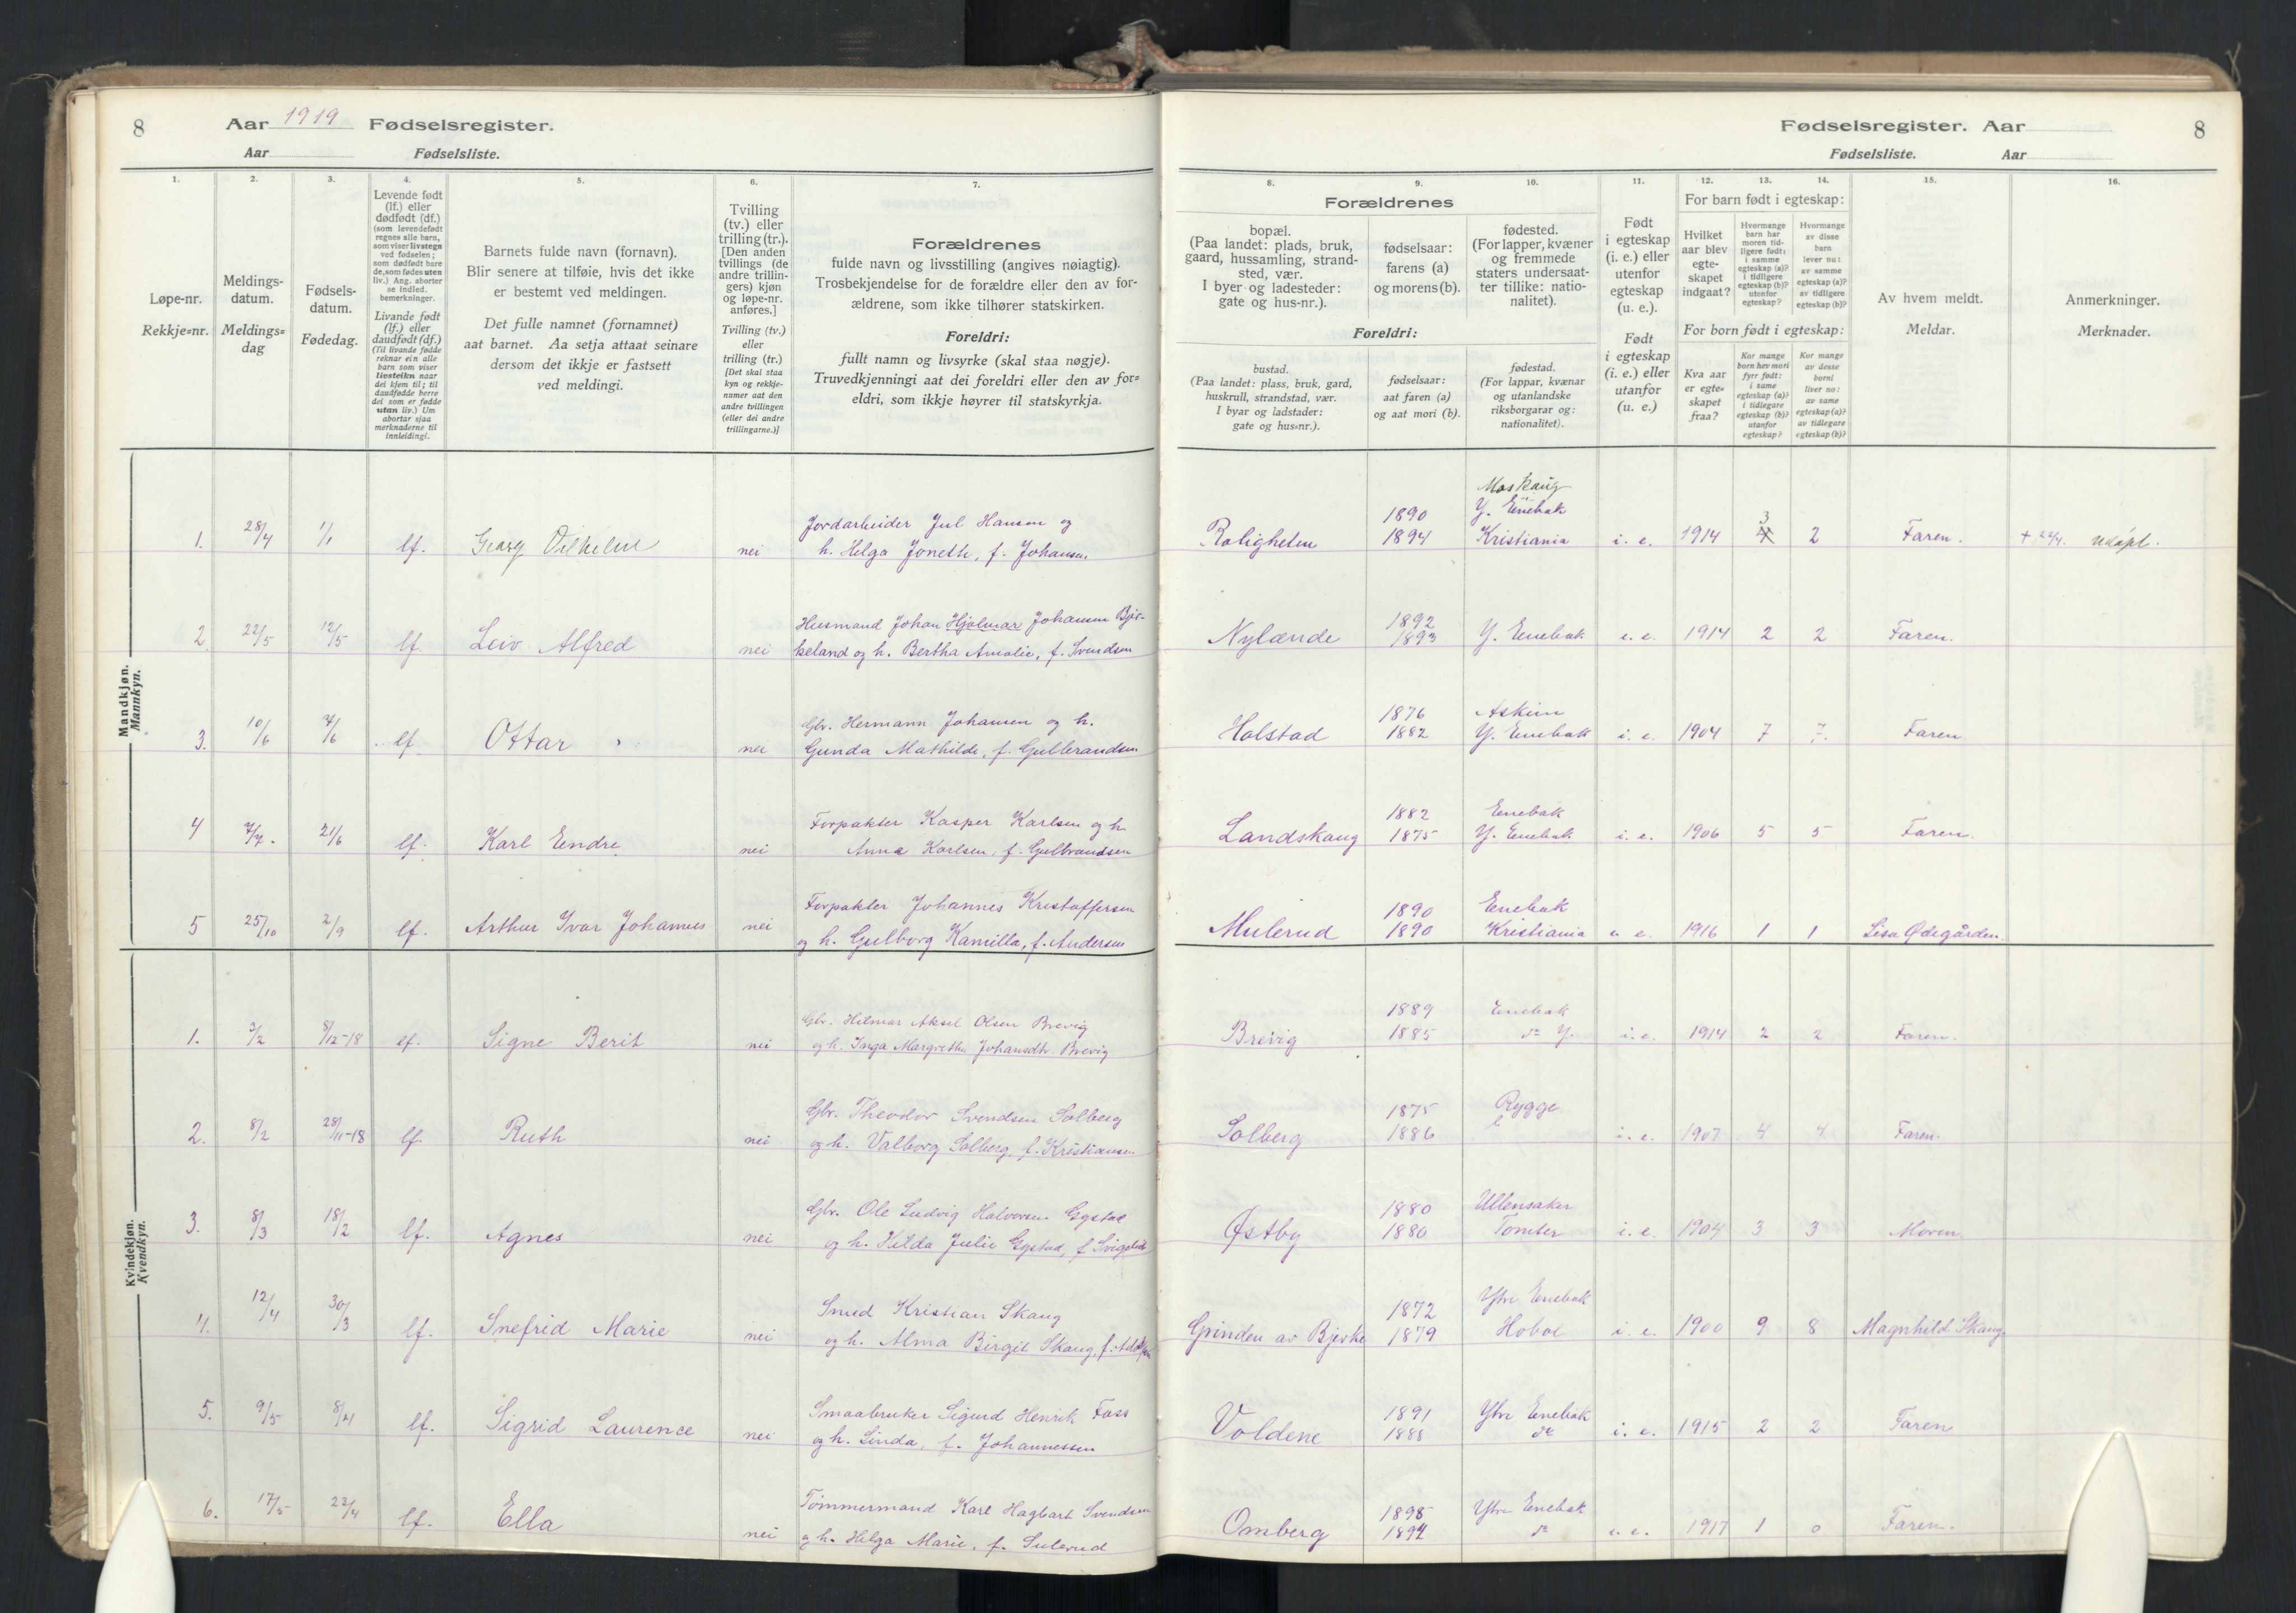 8 Aar 1919 Fødselsregister.
Aar Fødselsliste.
Fødselsregister. Aar 8
Fødselsliste. Aar
1. 2. 3. 4. 5. 6. 7.
Løpe-nr.
Rekkje=nr.
Meldings-
datum.
Meldings=
dag
Fødsels-
datum.
Fødedag.
Levende født
(lf.) eller
dødfødt (df.)
(som levendefødt
regnes alle barn,
som viser livstegn
ved fødselen;
som dødfødt bare
de, som fødes uten
liv.) Ang. aborter
se indled.
bemerkninger.
Livande født
(lf.) eller
daudfødt (df.)
(Til livande fødde
reknar ein alle
barn som viser
livsteikn naar
dei kjem til; til
daudfødde berre
dei som er fødde
utan liv.) Um
abortar sjaa
merknaderne til
innleidingi.
Barnets fulde navn (fornavn).
Blir senere at tilføie, hvis det ikke
er bestemt ved meldingen.
Det fulle namnet (fornamnet)
aat barnet. Aa setja attaat seinare
dersom det ikkje er fastsett
ved meldingi.
Tvilling
(tv.) eller
trilling (tr.).
[Den anden
tvillings (de
andre trillin-
gers) kjøn
og løpe-nr.
anføres.]
Tvilling (tv.)
eller
trilling (tr.)
[Det skal staa
kyn og rekkje-
numer aat den
andre tvillingen
(eller dei andre
trillingarne.)]
Forældrenes
fulde navn og livsstilling (angives nøiagtig).
Trosbekjendelse for de forældre eller den av for-
ældrene, som ikke tilhører statskirken.
Foreldri:
fullt namn og livsyrke (skal staa nøgje).
Truvedkjenningi aat dei foreldri eller den av for=
eldri, som ikkje høyrer til statskyrkja.
8. 9. 10. 11. 12. 13. 14. 15. 16.
Forældrenes
bopæl.
(Paa landet: plads, bruk,
gaard, hussamling, strand-
sted, vær.
I byer og ladesteder:
gate og hus-nr.).
fødselsaar:
farens (a)
og morens (b).
fødested.
(For lapper, kvæner
og fremmede
staters undersaat-
ter tillike: natio-
nalitet).
Foreldri:
bustad.
(Paa landet: plass, bruk, gard,
huskrull, strandstad, vær.
I byar og ladstader:
gate og hus=nr.).
fødselsaar:
aat faren (a)
og aat mori (b).
fødestad.
(For lappar, kvænar
og utanlandske
riksborgarar og:
nationalitet).
Født
i egteskap
(i. e.) eller
utenfor
egteskap
(u. e.).
Født
i egteskap
(i. e.) eller
utanfor
egteskap
(u. e.)
For barn født i egteskap:
Hvilket
aar blev
egte-
skapet
indgaat?
Hvormange
barn har
moren tid-
ligere født:
i samme
egteskap (a)?
i tidligere
egteskap (b)?
utenfor
egteskap?
Hvormange
av disse
barn
lever nu:
av samme
egteskap (a)?
av tidligere
egteskap (b)?
For born født i egteskap:
Kva aar
er egte-
skapet
fraa?
Kor mange
born hev mori
fyrr født:
i same
egteskap (a)?
i tidlegare
egteskap (b)?
utanfor
egteskap?
Kor mange
av desse
borni
liver no:
av same
egteskap (a)?
av tidlegare
egteskap (b)?
Av hvem meldt.
Meldar.
Anmerkninger.
Merknader.
Mandkjøn.
Mannkyn.
1. 28/4 1/1 lf. Georg Vilhelm nei Jordarbeider Jul Hansen og
h. Helga Joneth, f. Johansen.
Roligheten 1890 1894 Moskaug Y. Enebak Kristiania i. e. 1914 3 2 Faren. + 22/4. udøpt.
2. 22/5 12/5 lf. Leiv Alfred nei Husmand Johan Hjalmar Johansen Bjer-
keland og h. Bertha Amalie, f. Svendsen
Nylænde 1892 1893 Y. Enebak i. e. 1914 2 2 Faren.
3. 10/6 4/6 lf. Ottar nei Gbr. Hermann Johansen og h.
Gunda Mathilde, f. Gulbrandsen
Holstad 1876 1882 Askim Y. Enebak i. e. 1904 7 7. Faren
4 7/7. 21/6 lf. Karl Endre nei Forpakter Kasper Karlsen og h.
Anna Karlsen, f. Gulbrandsen
Landskaug 1882 1875 Enebak Y. Enebak i. e. 1906 5 5 Faren.
5 25/10 2/9 lf. Arthur Ivar Johannes nei Forpakter Johannes Kristoffersen
og h. Gulborg Kamilla, f. Andersen
Mulerud 1890 1890 Enebak Kristiania i. e. 1916 1 1 Lisa Ødegården.
Kvindekjøn.
Kvendkyn.
1. 3/2 8/12-18 lf. Signe Berit nei Gbr. Hilmar Aksel Olsen Brevig
og h. Inga Margrethe Johansdtr. Brevig
Brevig 1889 1885 Enebak do Y. i. e. 1914 2 2 Faren.
2. 8/2 28/11-18 lf. Ruth nei Gbr. Theodor Svendsen Solberg
og h. Valborg Solberg, f. Kristiansen
Solberg 1875 1886 Rygge i. e. 1907 4 4 Faren.
3. 8/3 18/2 lf. Agnes nei Gbr. Ole Ludvig Halvorsen Gystad
og h. Hilda Julie Gystad, f.
Østby 1880 1880 Ullensaker Tomter i. e. 1904 3 3 Moren
4. 12/4 30/3 lf. Snefrid Marie nei Smed Kristian Skaug
og h. Alma Birgit Skaug, f.
Grinden av Bjerke 1872 1879 Ytre Enebak Hobøl i. e. 1900 9 8 Magnhild Skaug
5. 9/5 8/4 lf. Sigrid Laurence nei Smaabruker Sigurd Henrik Foss
og h. Linda, f. Johannessen
Voldene 1891 1888 Ytre Enebak do i. e. 1915 2 2 Faren
6. 17/5 22/4 lf. Ella nei Tømmermand Karl Hagbart Svendsen
og h. Helga Marie, f. Sulerud
Omberg 1895 1894 Ytre Enebak do i. e. 1917 1 0 Faren.